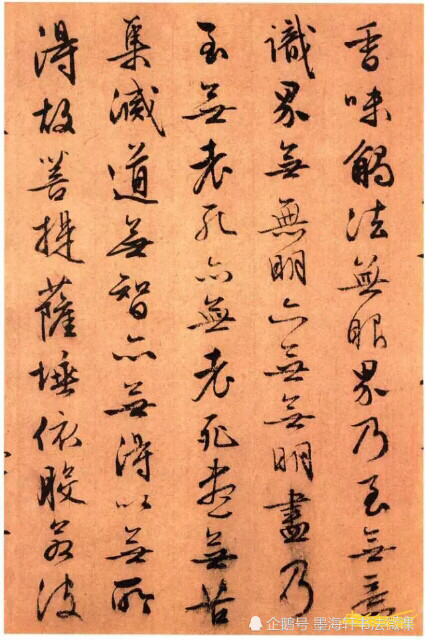 香味觸法無眼界乃至無意
識界無無明亦無無明盡乃
至無老死亦無老死盡無苦
集滅道無智亦無得以無所
得故菩提薩埵依般若波
企鹅号 墨海轩书法微课